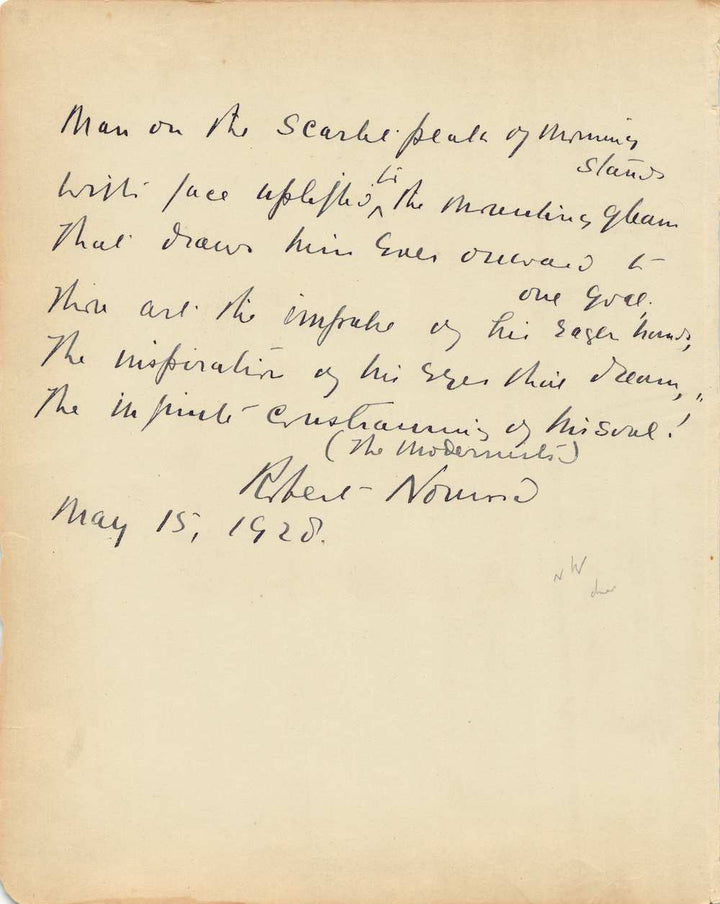 Man on the Scarlet peaks of Morning
stands
With face uplifted to the Mounting gleam
That draws him ever onward to
one goal.
Thou art the impulse of his eager hands,
The inspiration of his eyes that dream,
The infinite constraining of his soul!
(The Modernists)
Robert Norwood
May 15, 1928.